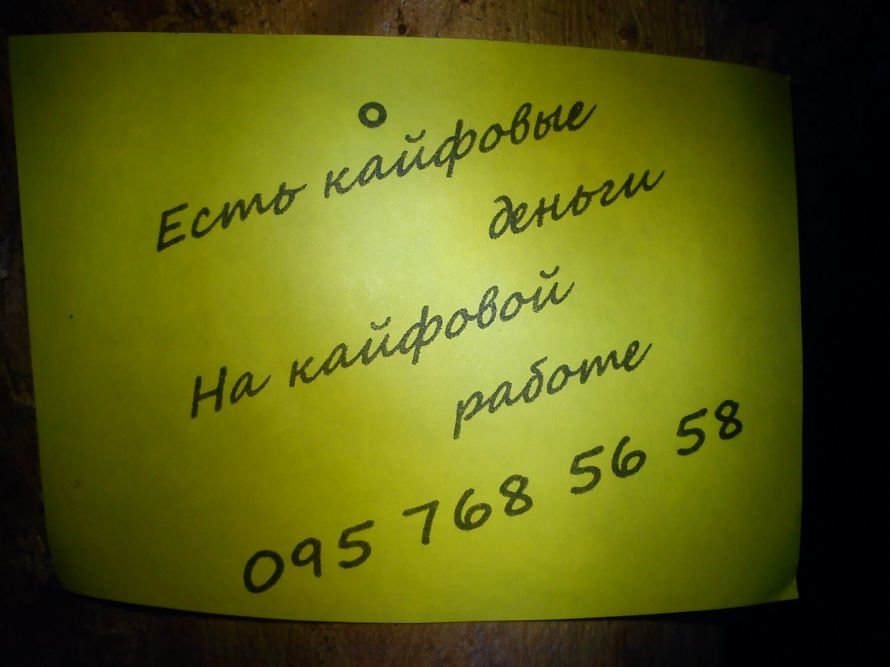 Есть кайфовые
деньги
На кайфовой
работе
095 768 56 58